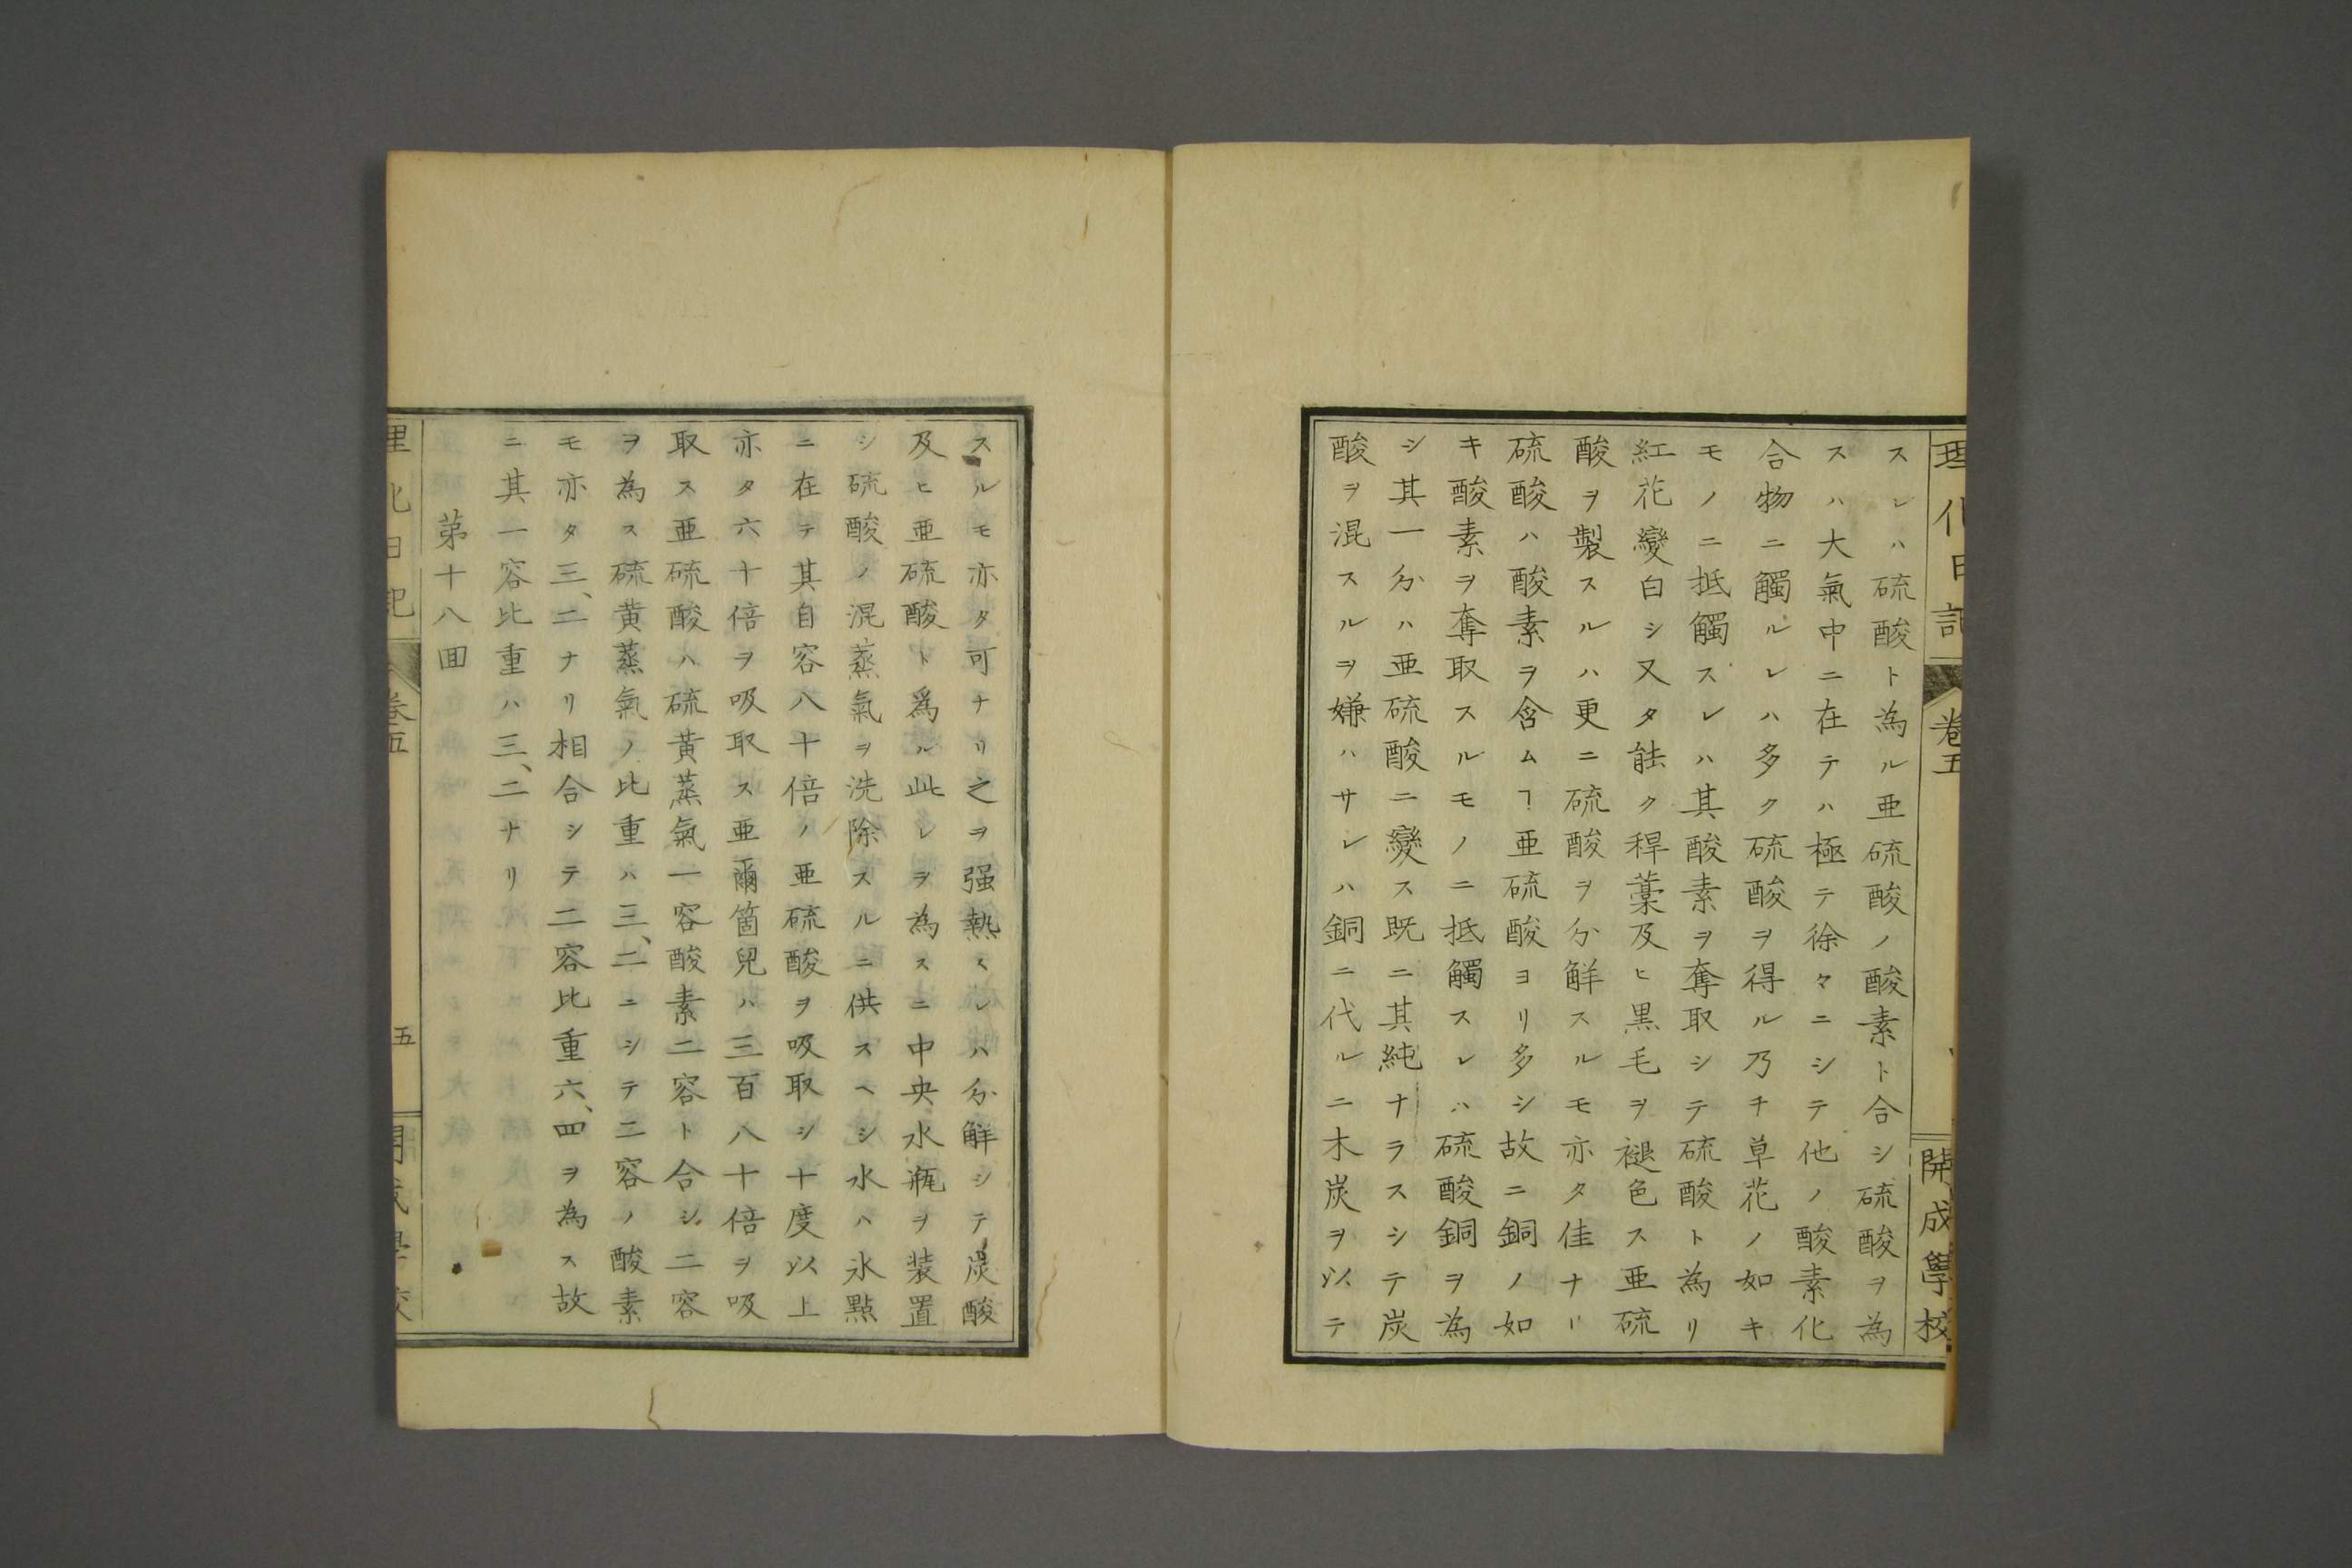 理化日記 卷五 開成學校
スレハ硫酸ト為ル亜硫酸ノ酸素ト合シ硫酸ヲ為
スハ大氣中ニ在テハ極テ徐々ニシテ他ノ酸素化
合物ニ觸ルレハ多ク硫酸ヲ得ル乃チ草花ノ如キ
モノニ抵觸スレハ其酸素ヲ奪取シテ硫酸ト為リ
紅花變白シ又タ能ク稈藁及ヒ黒毛ヲ褪色ス亜硫
酸ヲ製スルハ更ニ硫酸ヲ分解スルモ亦タ佳ナリ
硫酸ハ酸素ヲ含ムヿ亜硫酸ヨリ多シ故ニ銅ノ如
キ酸素ヲ奪取スルモノニ抵觸スレハ硫酸銅ヲ為
シ其一分ハ亜硫酸ニ變ス既ニ其純ナラスシテ炭
酸ヲ混スルヲ嫌ハサレハ銅ニ代ルニ木炭ヲ以テ
スルモ亦タ可ナリ之ヲ强熱スレハ分解シテ炭酸
及ヒ亜硫酸ト爲ル此レヲ為スニ中央水瓶ヲ装置
シ硫酸ノ混蒸氣ヲ洗除スルニ供スヘシ水ハ氷點
ニ在テ其自容八十倍ノ亜硫酸ヲ吸取シ十度以上
亦タ六十倍ヲ吸取ス亜爾箇兒ハ三百八十倍ヲ吸
取ス亜硫酸ハ硫黃蒸氣一容酸素二容ト合シ二容
ヲ為ス硫黄蒸氣ノ比重ハ三、二ニシテ二容ノ酸素
モ亦タ三、二ナリ相合シテ二容比重六、四ヲ為ス故
ニ其一容比重ハ三、二ナリ
第十八囬
理化日記 卷五 五 開成學校